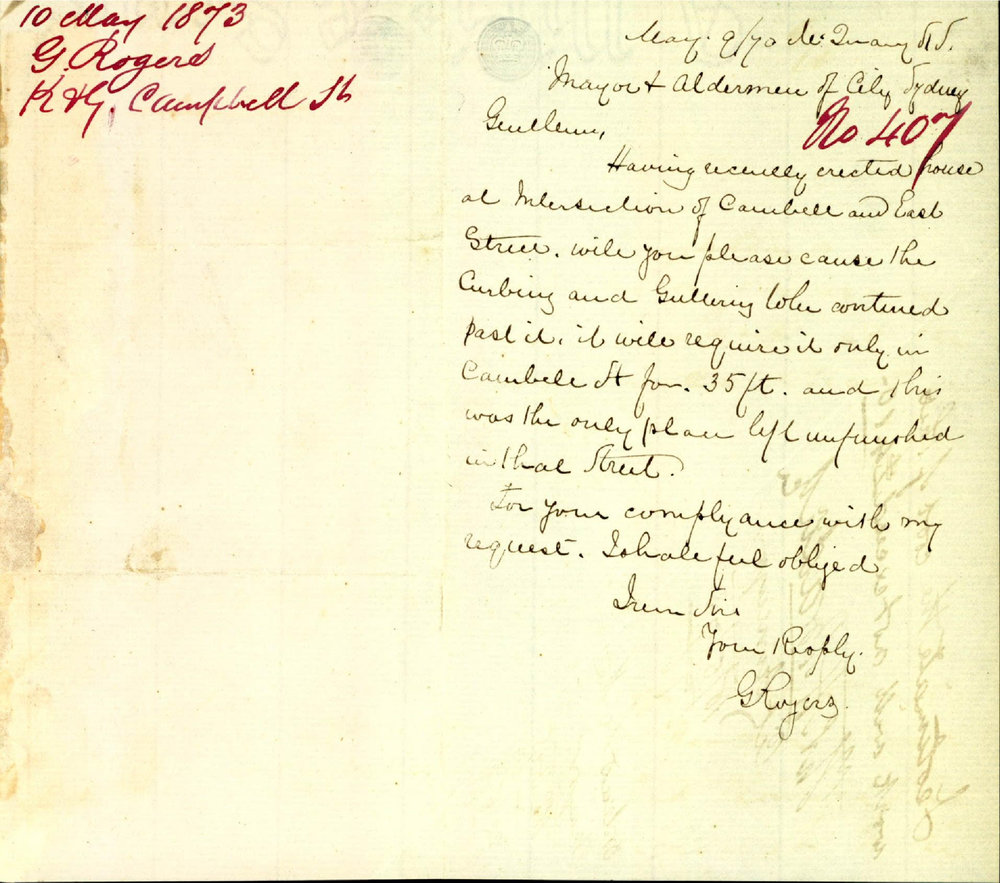 10 May 1873
G. Rogers
K & G, Campbell St
May 9/70
Mayor & Aldermen of City Sydney
No 407
Gentlemen,
Having recently erected house
at Intersection of Cambell and East
Street. will you please cause the
Curbing and Guttering to be contined
past it, it will require it only in
Cambell St for. 35 ft. and this
was the only place left unfinished
in that Street.
For your complyance with my
request. I shall feel obliged
I rem Sirs
Your Resply.
G Rogers.